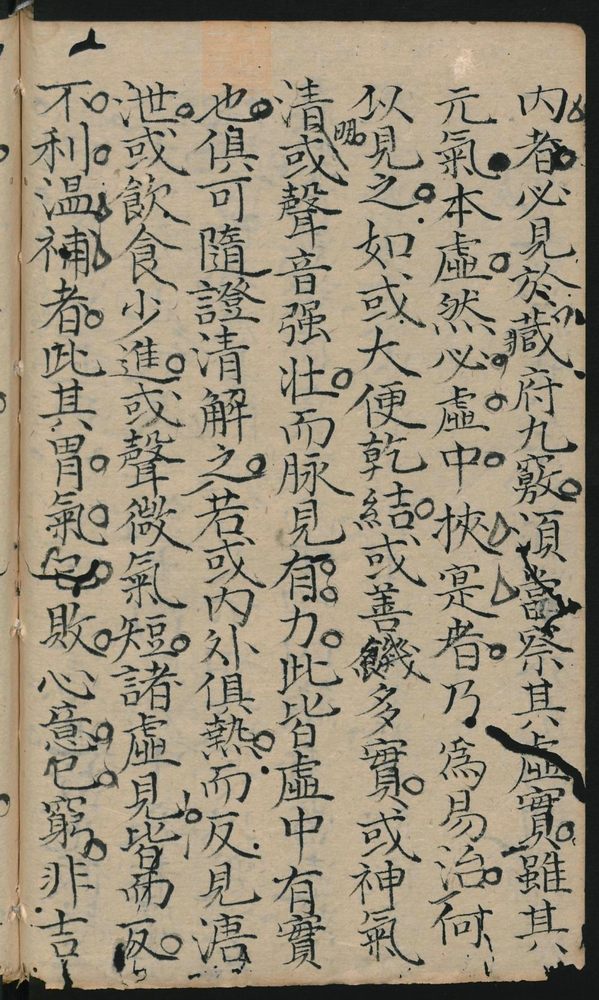 内者必見於藏府九竅須當察其虛實雖其
元氣本虛然必虛中挾寔者乃爲易治何
似見之如或大便乾結或善饑多實或神氣
清明或聲音强壯而脉見有力此皆虛中有實
也俱可隨證清解之若或内外俱熱而反見溏
泄或飲食少進或聲微氣短諸虛見皆而反
不利温補者此其胃氣已敗心意已窮非吉